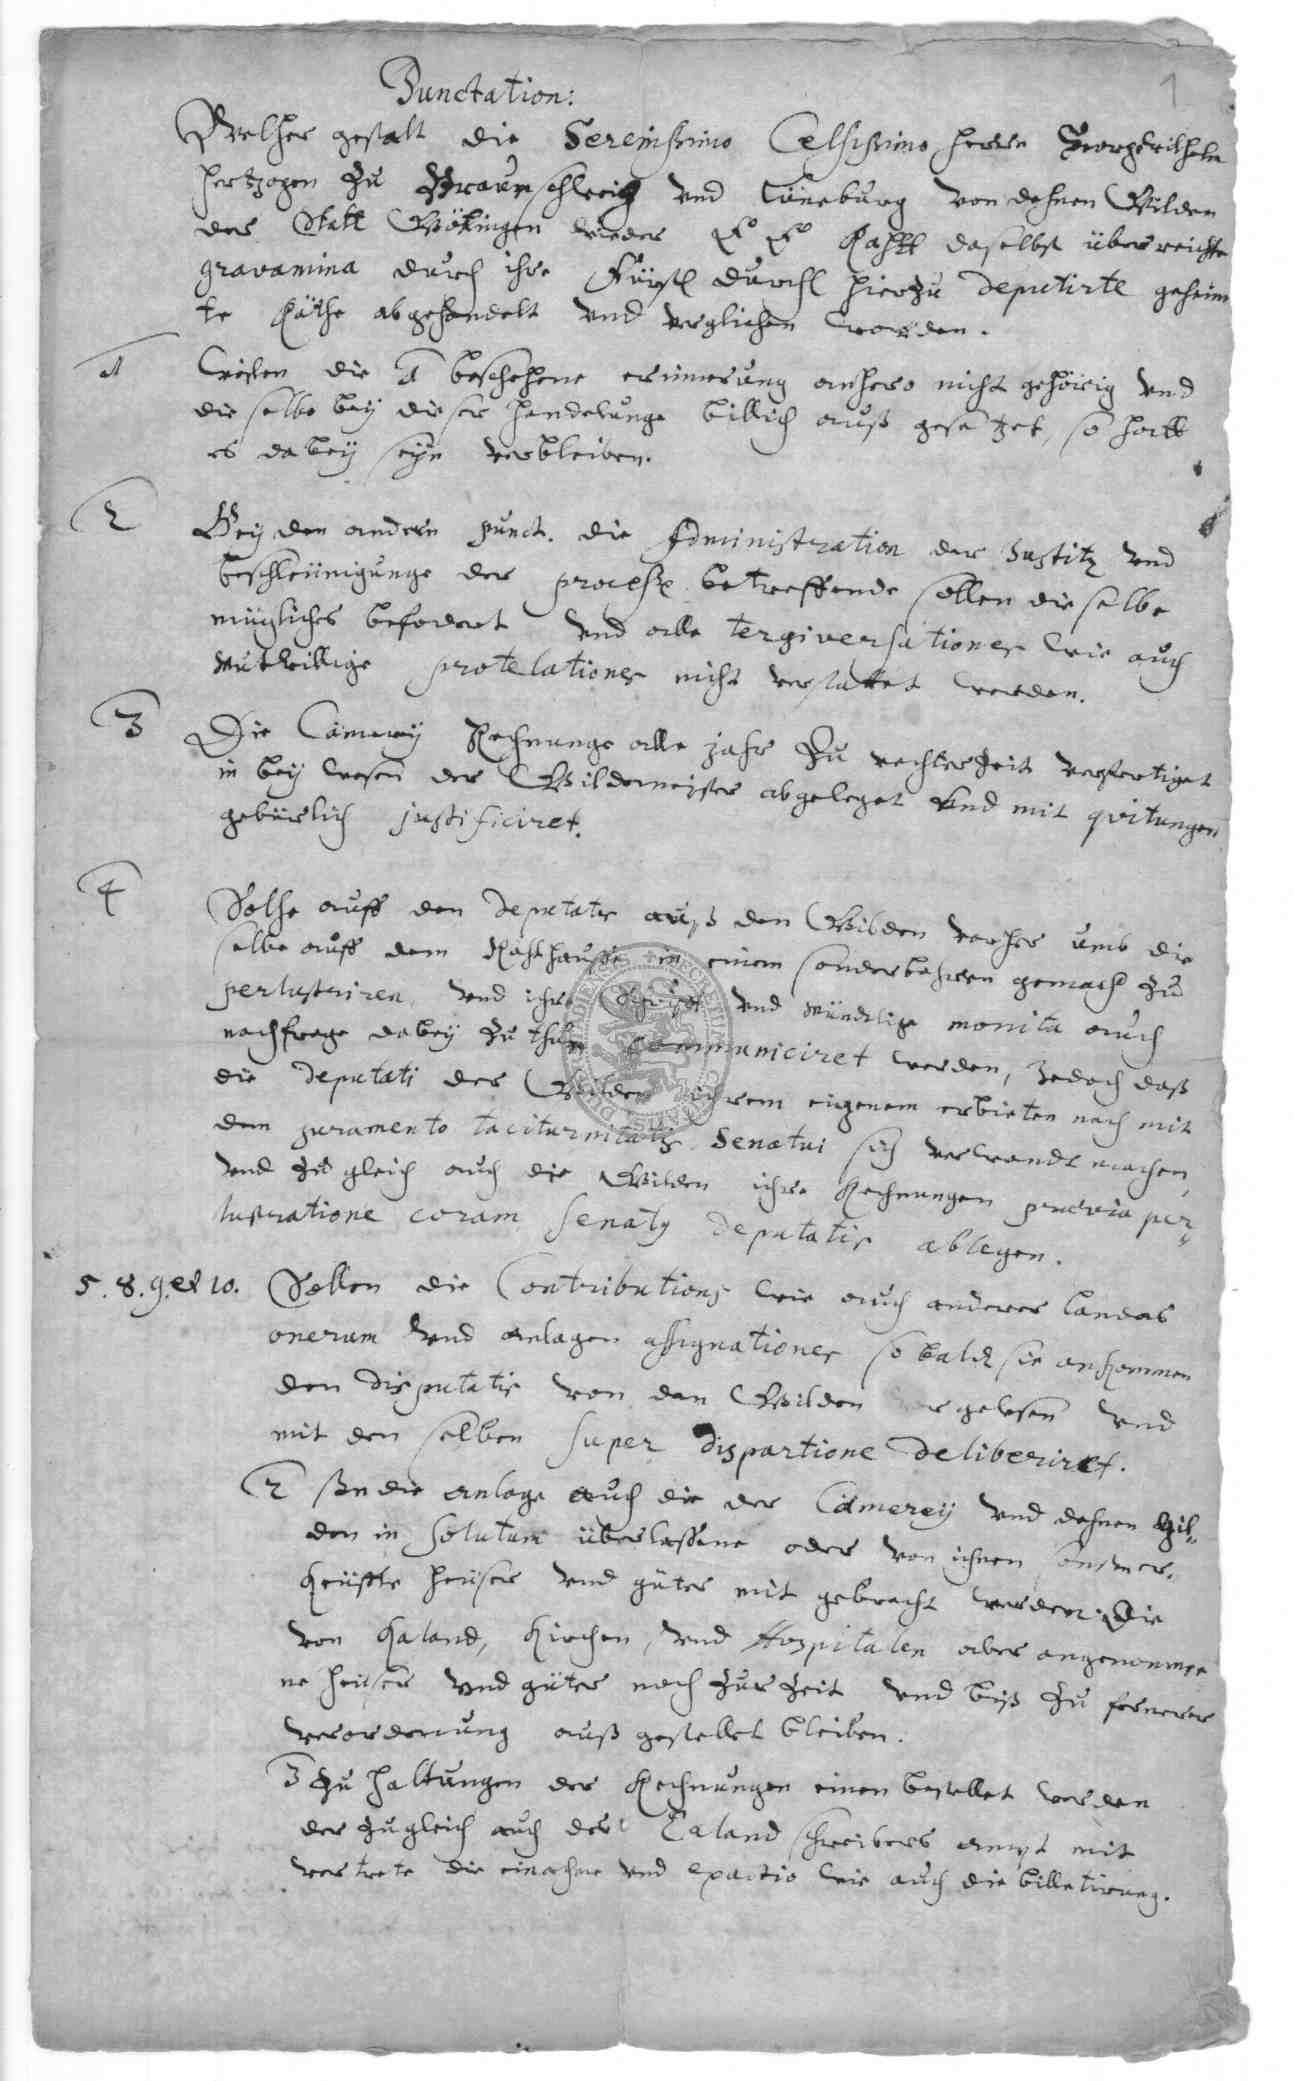 1
Punctation:
Welcher gestalt die Serenissimo Celsissimo Herrn Georg Wilhelm
Hertzogen Zu Braunschweig vnd Lüneburg von dehnen Gilden
der Statt Göttingen wieder E E Rahtt daselbst überreichte
gravamina durch ihre Fürstl Durchl hierzu deputirte geheim
te Räthe abgehandelt vnd verglichen worden.
1 Weilen die beschehene erinnerung anhero nicht gehörig vnd
dieselbe bey dieser handelunge billich auß gesetzet, so hatt
es dabey sein verbleiben.
2 Bey den andern punct. die Administration der Justitz vnd
beschleunigunge der processe betreffende sollen dieselbe
mügliches befodert vnd alle tergiversationes wie auch
mutwillige protelationes nicht verstattet werden.
3 Die Cämerey Rechnunge alle Jahr Zu rechter Zeit verfertiget
in bey wesen der Gildemeister abgeleget vnd mit qvitungen
gebürlich justificiret.
4 Solche auff den Deputatis auß den Gilden vorher umb die
selbe auff dem Rahthause in einem sonderbahren gemach zu
perlustriren, vnd ihre vnd mündlige monita auch
nachfrage dabey zu thun communiciret werden, Jedoch daß
die Deputati der Gilden ihrem eigenem erbieten nach mit
dem juramento taciturnitatis Senatui sich verwandt machen,
vnd zu gleich auch die Gilden ihre Rechnungen praevia per-
lustratione coram Senatus Deputatis ablegen.
5. 8. 9. et 10. Sollen die Contributions wie auch anderer landes
onerum vnd anlagen assignationes so baldt sie ankommen
den Disputatis von den Gilden vorgelesen vnd
mit denselben super dispartione deliberiret.
2 In die anlage auch die der Cämerey vnd dehnen Gil-
den in solutum überlassene oder von ihnen
keüffte heüser vnd güter mit gebracht werden. Die
von Kaland, Kirchen, vnd Hospitalen aber angenomme
ne heüser vnd güter noch zur Zeit vnd biß zu ferner
verordenung auß gestellet bleiben.
3 Zu haltungen der Rechnungen einen bestellet werden
der zugleich auch der Caland schreibers ampt mit
vertrete die einahme vnd exactio wie auch die billetirung.